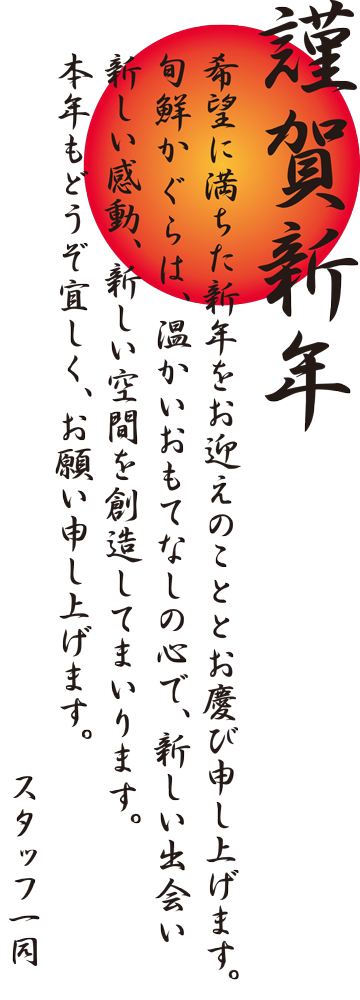 謹賀新年
希望に満ちた新年をお迎えのこととお慶び申し上げます。
旬鮮かぐらは、温かいおもてなしの心で、新しい出会い
新しい感動、新しい空間を創造してまいります。
本年もどうぞ宜しく、お願い申し上げます。
スタッフ一同